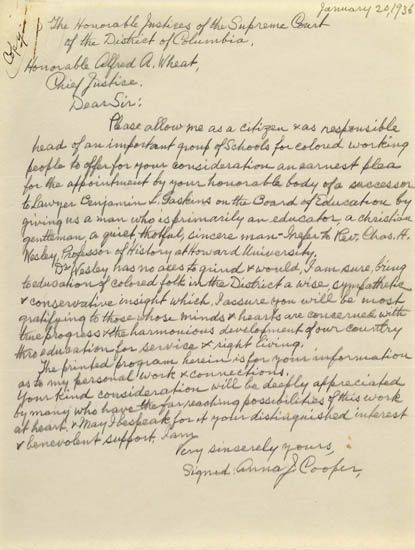 January 20, 1936
Copy
The Honorable Justices of the Supreme Court
of the District of Columbia,
Honorable Alfred A. Wheat,
Chief Justice.
Dear Sir:
Please allow me as a citizen & as responsible
head of an important group of Schools for colored working
people to offer for your consideration an earnest plea
for the appointment by your honorable body of a successor
to Lawyer Benjamin L. Gaskins on the Board of Education by
giving us a man who is primarily an educator, a christian
gentleman, a quiet, thotful, sincere man - I refer to Rev. Chas. H.
Wesley, Professor of History at Howard University.
Dr. Wesley has no axes to grind & would, I am sure, bring
to education of colored folk in the District a wise, sympathetic
& conservative insight which, I assure you will be most
gratifying to those whose minds & hearts are concerned with
true progress & the harmonious development of our country
thro education for service & right living.
The printed program herein is for your information
as to my personal work & connections.
Your kind consideration will be deeply appreciated
by many who have the far reaching possibilities of this work
at heart. & May I bespeak for it your distinguished interest
& benevolent support. I am
Very sincerely yours,
Signed: Anna J. Cooper,